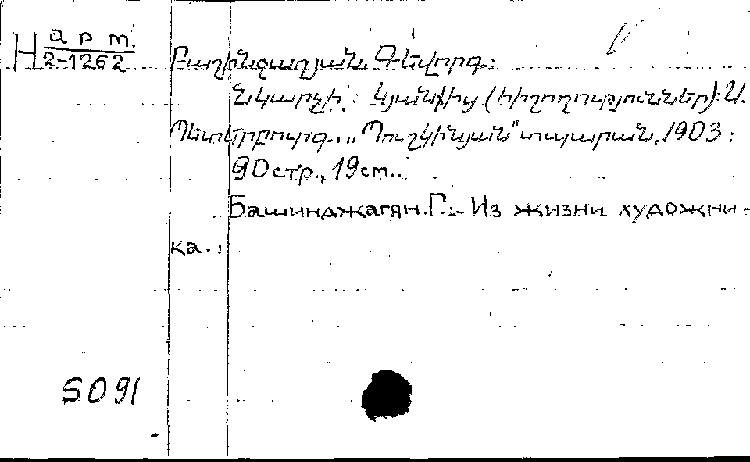 Н арт.
2-1262
Բաշինջաղյան Գևորգ:
Նկարչի կյանքից (հիշողություններ): Ս.
Պետերբուրգ, „Պուշկինյան" տպարան, 1903:
90 стр., 19 см.
Башинджагян Г. - Из жизни художни-
ка.
5091